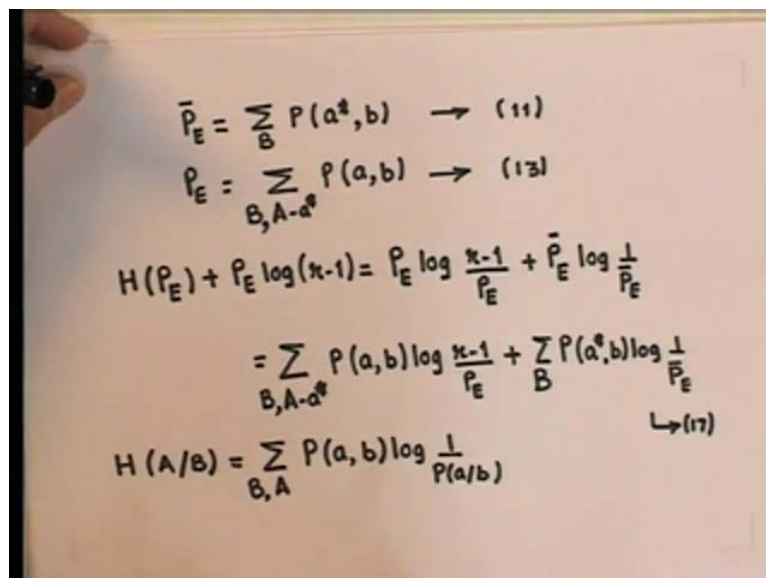 P̄_E = Σ_B P(a*, b) → (11)
P_E = Σ_{B, A-a*} P(a, b) → (13)
H(P_E) + P_E log(r-1) = P_E log (r-1)/P_E + P̄_E log 1/P̄_E
= Σ_{B, A-a*} P(a, b) log (r-1)/P_E + Σ_B P(a*, b) log 1/P̄_E
↳ (17)
H(A/B) = Σ_{B, A} P(a, b) log 1/P(a/b)